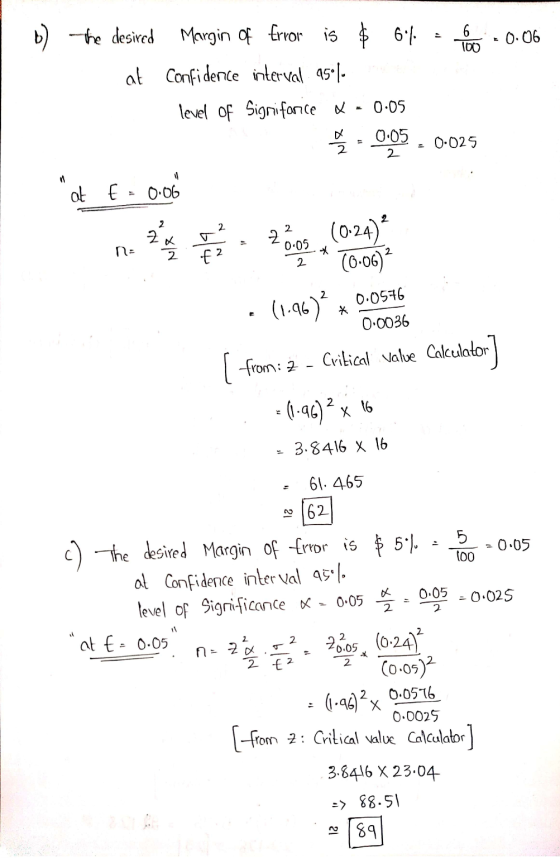 b) The desired Margin of Error is $ 6% = 6/100 = 0.06
at Confidence interval 95%.
level of Signifance α = 0.05
α/2 = 0.05/2 = 0.025
"at E = 0.06"
n = z²α/2 σ²/E² = z²0.05/2 * (0.24)²/(0.06)²
= (1.96)² * 0.0576/0.0036
[from: z - Critical value Calculator]
= (1.96)² x 16
= 3.8416 x 16
= 61.465
≃ 62
c) The desired Margin of Error is $ 5% = 5/100 = 0.05
at Confidence interval 95%.
level of Significance α = 0.05 α/2 = 0.05/2 = 0.025
"at E = 0.05". n = z²α/2 . σ²/E² = z²0.05/2 * (0.24)²/(0.05)²
= (1.96)² x 0.0576/0.0025
[from z: Critical value Calculator]
3.8416 x 23.04
=> 88.51
≃ 89